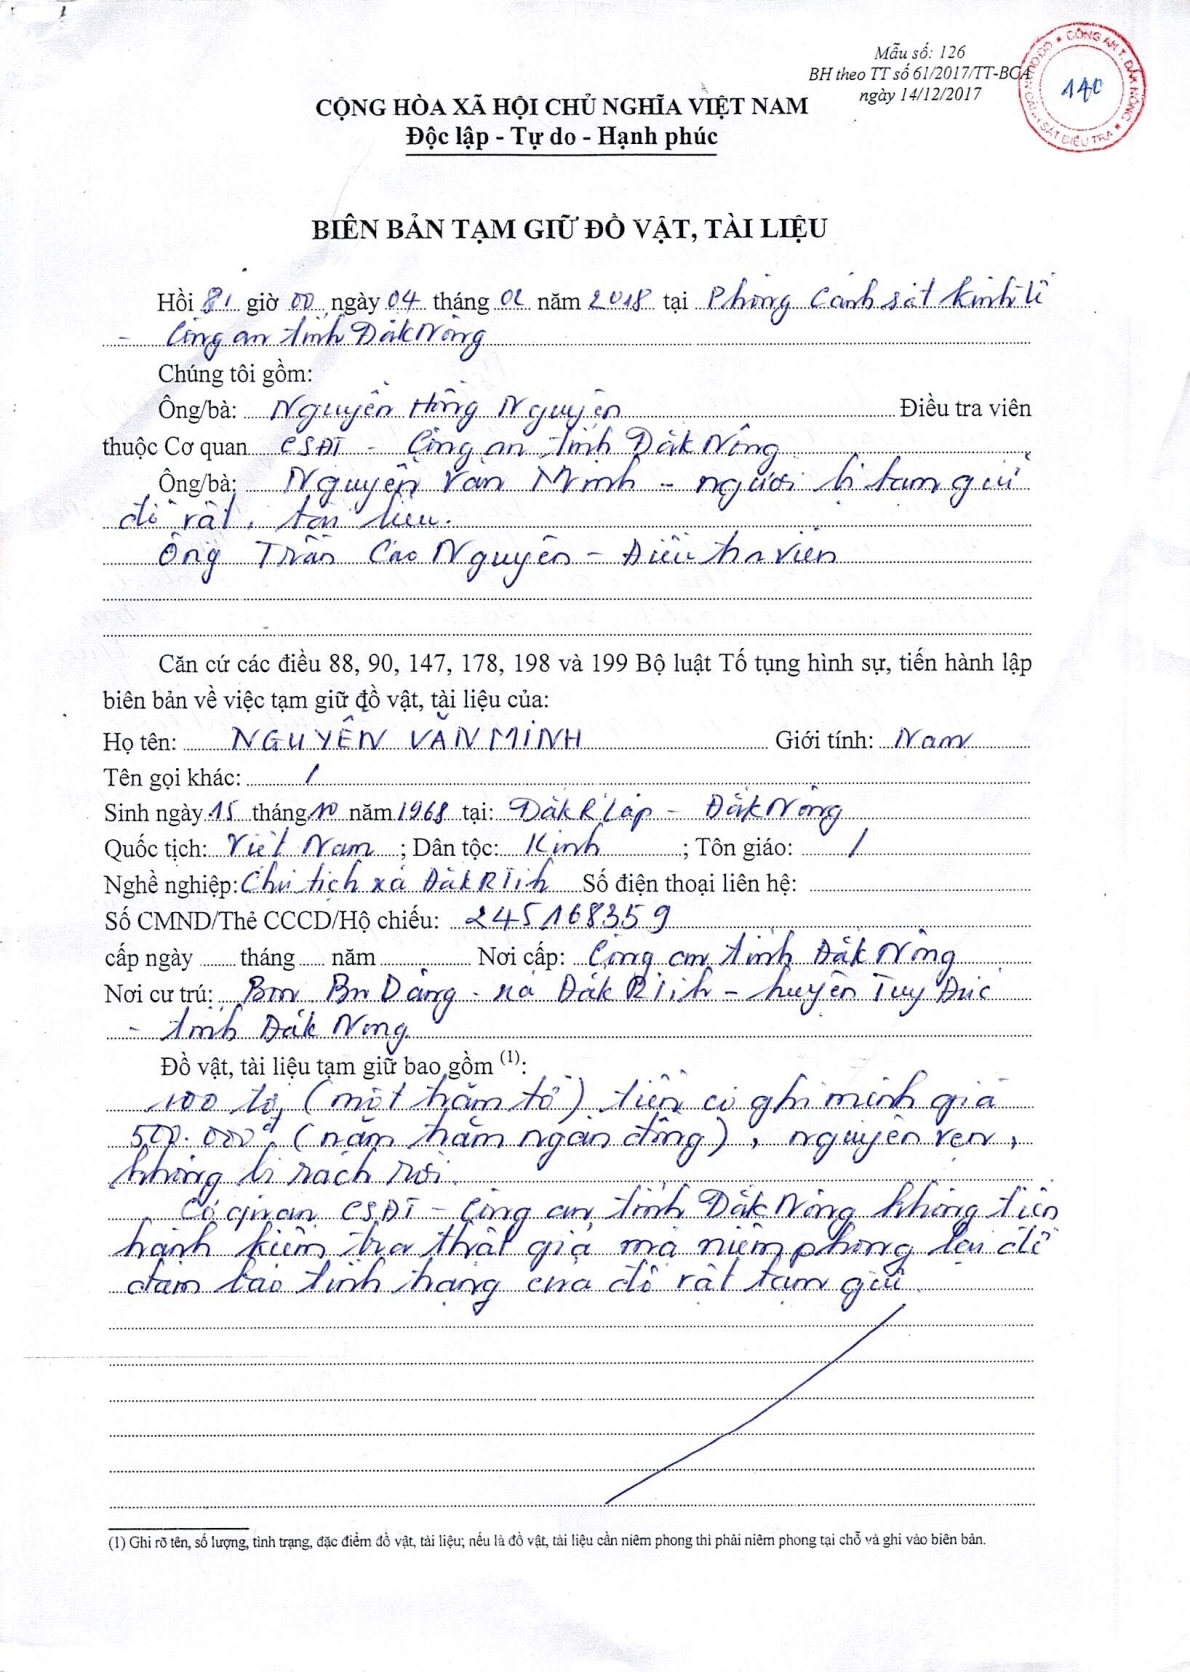 Mẫu số: 126
BH theo TT số 61/2017/TT-BCA
ngày 14/12/2017
CÔNG AN T. ĐẮK NÔNG
SÁT ĐIỀU TRA
140
CỘNG HÒA XÃ HỘI CHỦ NGHĨA VIỆT NAM
Độc lập - Tự do - Hạnh phúc
BIÊN BẢN TẠM GIỮ ĐỒ VẬT, TÀI LIỆU
Hồi 8 giờ 00 ngày 04 tháng 02 năm 2018 tại Phòng Cảnh sát kinh tế
- Công an tỉnh Đắk Nông
Chúng tôi gồm:
Ông/bà: Nguyễn Hồng Nguyên Điều tra viên
thuộc Cơ quan CSĐT - Công an tỉnh Đắk Nông
Ông/bà: Nguyễn Văn Minh - người bị tạm giữ
đồ vật, tài liệu.
Ông Trần Cao Nguyên - Điều tra viên
Căn cứ các điều 88, 90, 147, 178, 198 và 199 Bộ luật Tố tụng hình sự, tiến hành lập
biên bản về việc tạm giữ đồ vật, tài liệu của:
Họ tên: NGUYỄN VĂN MINH Giới tính: Nam
Tên gọi khác: /
Sinh ngày 15 tháng 10 năm 1968 tại: Đắk R'Lấp - Đắk Nông
Quốc tịch: Việt Nam ; Dân tộc: Kinh ; Tôn giáo: /
Nghề nghiệp: Chủ tịch xã Đắk RTih Số điện thoại liên hệ:
Số CMND/Thẻ CCCD/Hộ chiếu: 245168359
cấp ngày tháng năm Nơi cấp: Công an tỉnh Đắk Nông
Nơi cư trú: Bon Bu Dâng - xã Đắk RTih - huyện Tuy Đức
- tỉnh Đắk Nông
Đồ vật, tài liệu tạm giữ bao gồm (1):
100 tờ (một trăm tờ) tiền có ghi mệnh giá
500.000đ (năm trăm ngàn đồng), nguyên vẹn,
không bị rách rời.
Cơ quan CSĐT - Công an tỉnh Đắk Nông không tiến
hành kiểm tra thật giả mà niêm phong lại để
đảm bảo tình trạng của đồ vật tạm giữ
(1) Ghi rõ tên, số lượng, tình trạng, đặc điểm đồ vật, tài liệu; nếu là đồ vật, tài liệu cần niêm phong thì phải niêm phong tại chỗ và ghi vào biên bản.